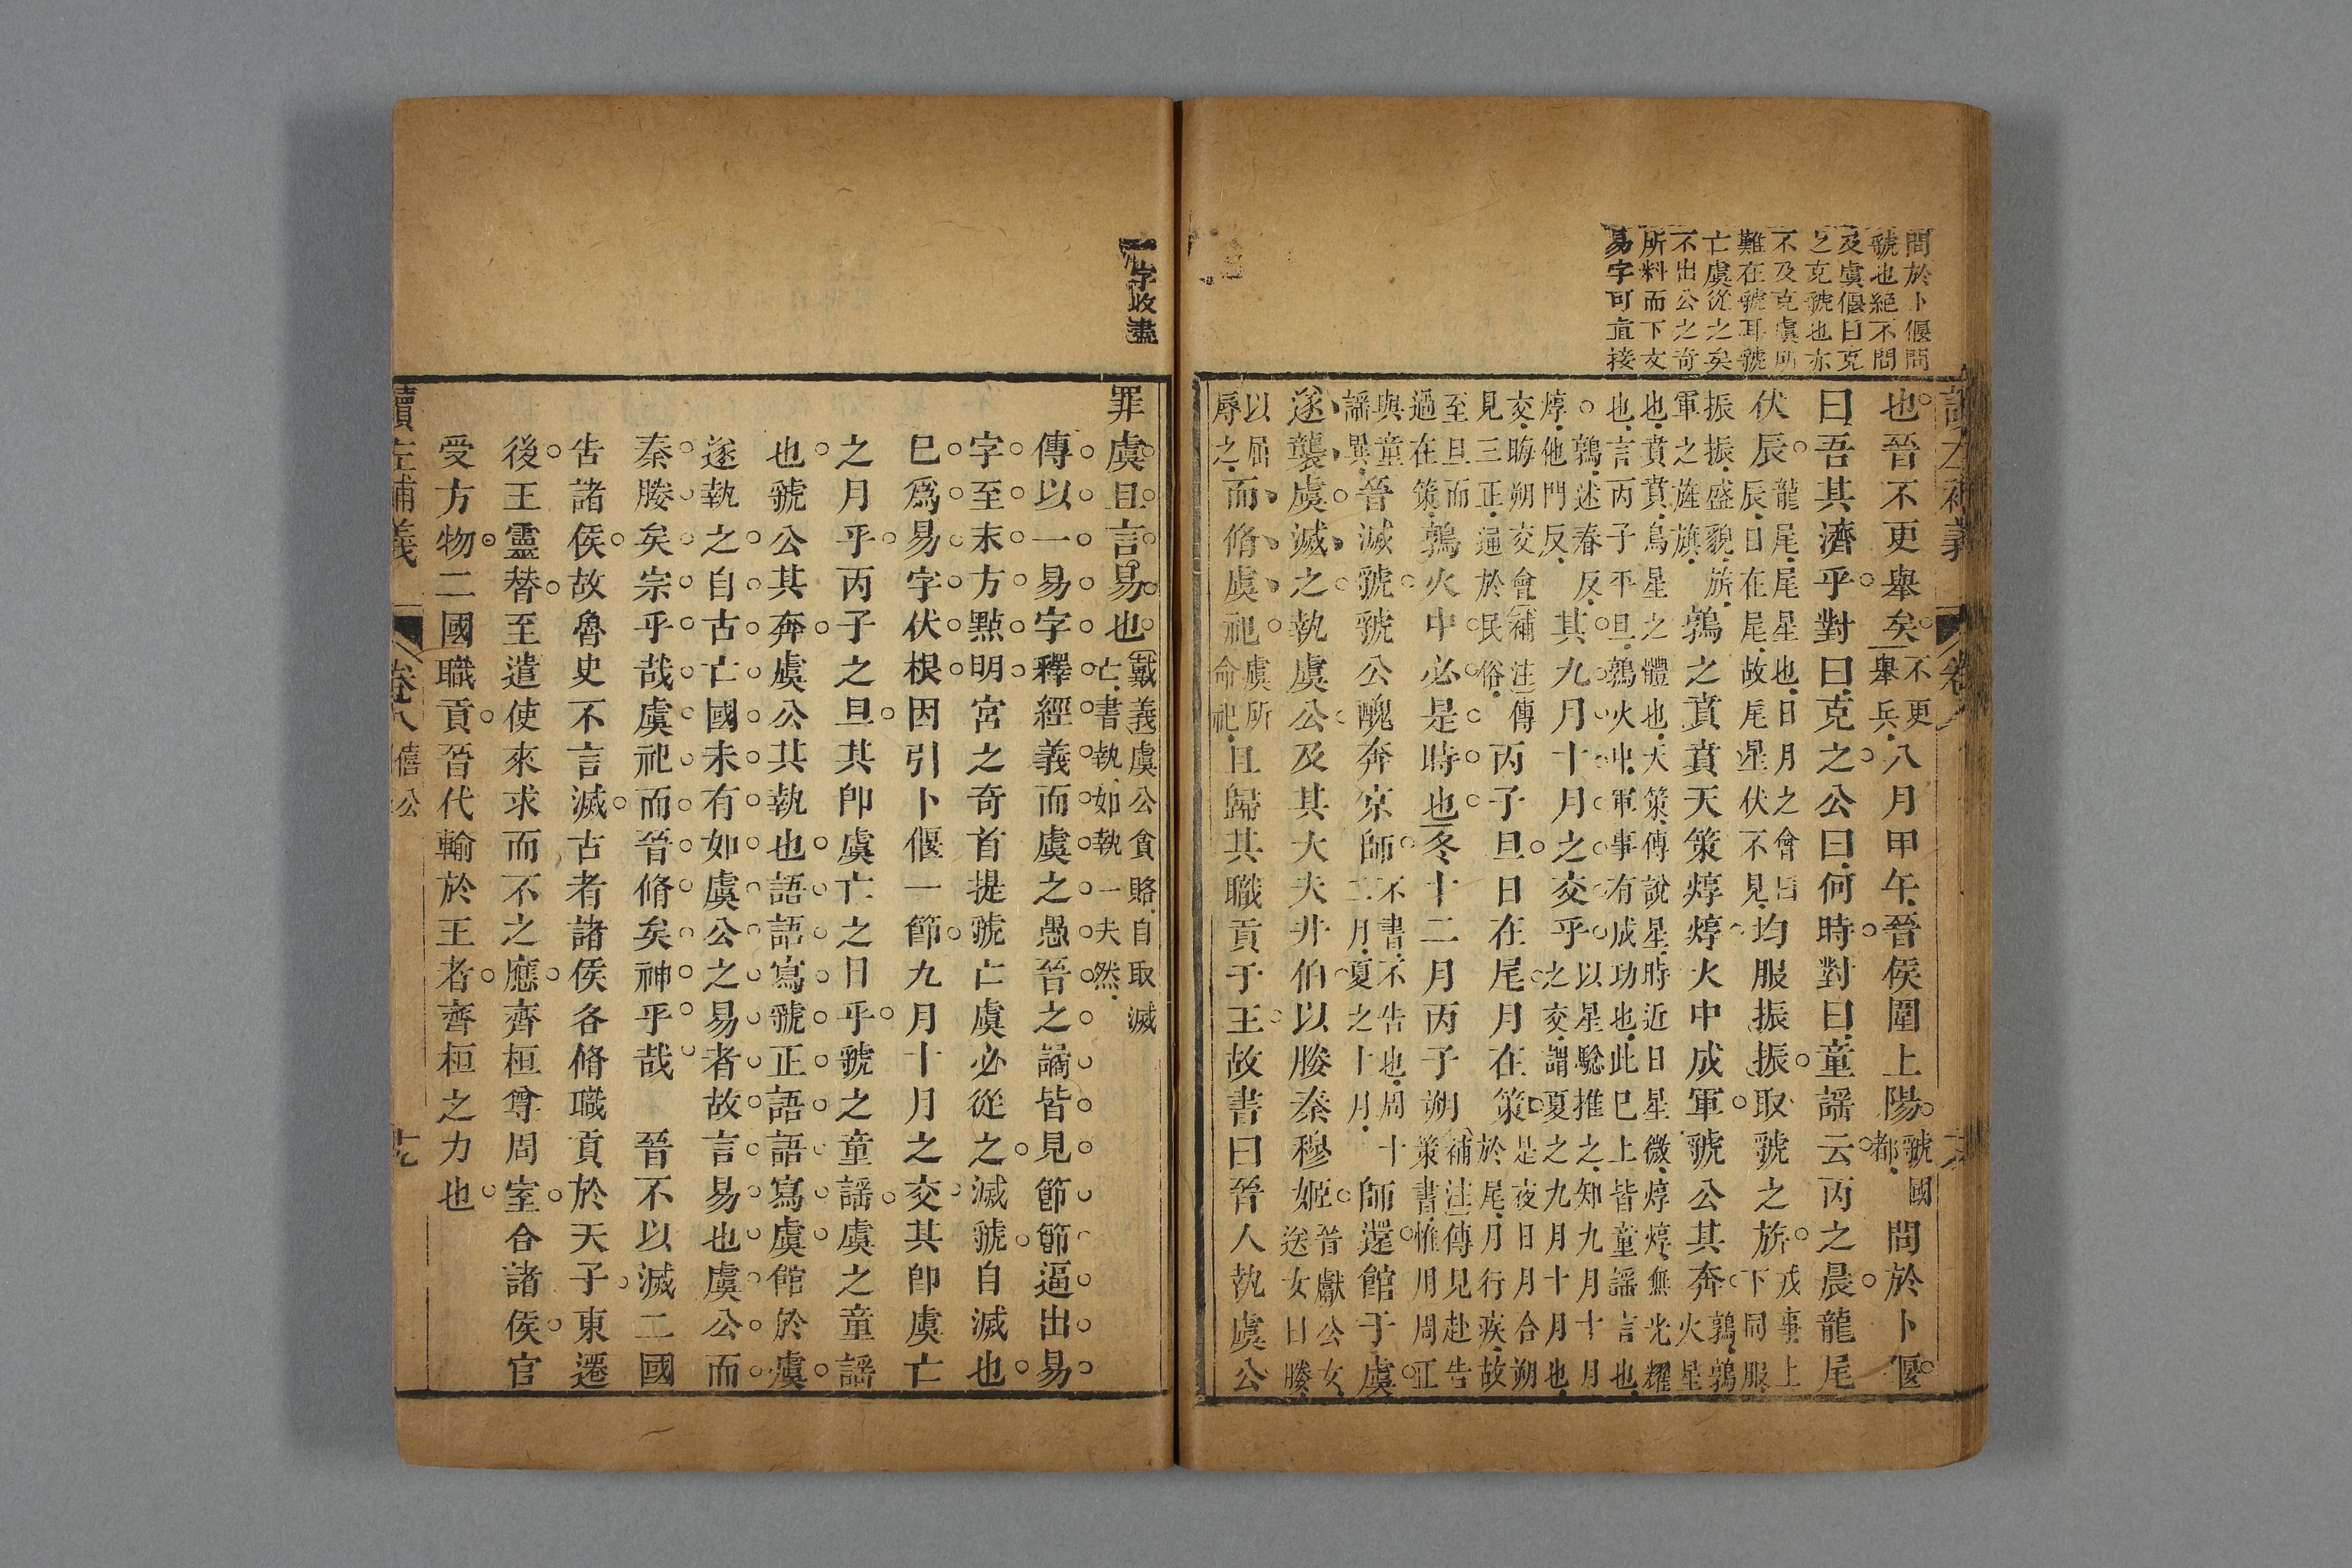 問於卜偃問
虢也絕不問
及虞偃曰克
之克虢也亦
不及克虞所
難在虢耳虢
亡虞從之矣
不出公之奇
所料而下文
易字可直接
也晉不更舉矣不更舉兵八月甲午晉侯圍上陽虢國都問於卜偃
曰吾其濟乎對曰克之公曰何時對曰童謠云丙之晨龍尾
伏辰龍尾尾星也日月之會曰辰日在尾故尾星伏不見均服振振取虢之旂戎事上下同服
振振盛貌旂軍之旌旗鶉之賁賁天策焞焞火中成軍虢公其奔鶉鶉火星
也賁賁鳥星之體也天策傅說星時近日星微焞焞無光耀也言丙子平旦鶉火中軍事有成功也此巳上皆童謠言也
○鶉述春反焞他門反其九月十月之交乎以星驗推之知九月十月之交謂夏之九月十月也
交晦朔交會補注傳見三正通於民俗丙子旦日在尾月在策是夜日月合朔於尾月行疾故
至旦而過在策鶉火中必是時也冬十二月丙子朔補注傳見赴告策書惟用周正
與童謠異晉滅虢虢公醜奔京師不書不告也周十二月夏之十月師還館于虞
遂襲虞滅之執虞公及其大夫井伯以媵秦穆姬晉獻公女送女曰媵
以屈辱之而脩虞祀虞所命祀且歸其職貢于王故書曰晉人執虞公
字收盡
罪虞且言易也戴義虞公貪賂自取滅亡書執如執一夫然
傳以一易字釋經義而虞之愚晉之譎皆見節節逼出易
字至末方點明宮之奇首提虢亡虞必從之滅虢自滅也
巳爲易字伏根因引卜偃一節九月十月之交其卽虞亡
之月乎丙子之旦其卽虞亡之日乎虢之童謠虞之童謠
也虢公其奔虞公其執也語語寫虢正語語寫虞館於虞
遂執之自古亡國未有如虞公之易者故言易也虞公而
秦媵矣宗乎哉虞祀而晉脩矣神乎哉 晉不以滅二國
告諸侯故魯史不言滅古者諸侯各脩職貢於天子東遷
後王靈替至遣使來求而不之應齊桓尊周室合諸侯官
受方物二國職貢晉代輸於王者齊桓之力也
讀左補義 卷八 僖公